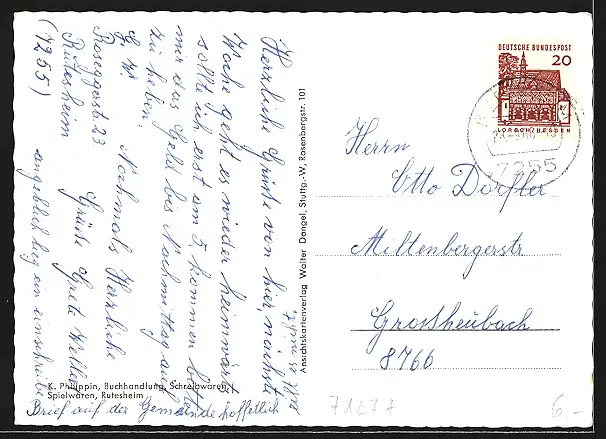 Herzliche Grüße von hier, nächste
Woche geht es wieder heimwärts
sollte ich erst am 5. kommen bitte
mir das Geld bis Nachmittag auf
zu heben.
Nochmals Herzliche
Grüße Grete Keller
G. W.
Roseggerstr. 23
Rutesheim
(7255)
angeblich lieg ein einschreibe
Brief auf der Gemeinde hoffetlich
K. Philippin, Buchhandlung, Schreibwaren,
Spielwaren, Rutesheim
Ansichtskartenverlag Walter Dangel, Stuttg.-W, Rosenbergstr. 101
DEUTSCHE BUNDESPOST
20
LORSCH/HESSEN
7255
Herrn
Otto Dörfler
Miltenbergerstr
Großheubach
8766
71277
6.-